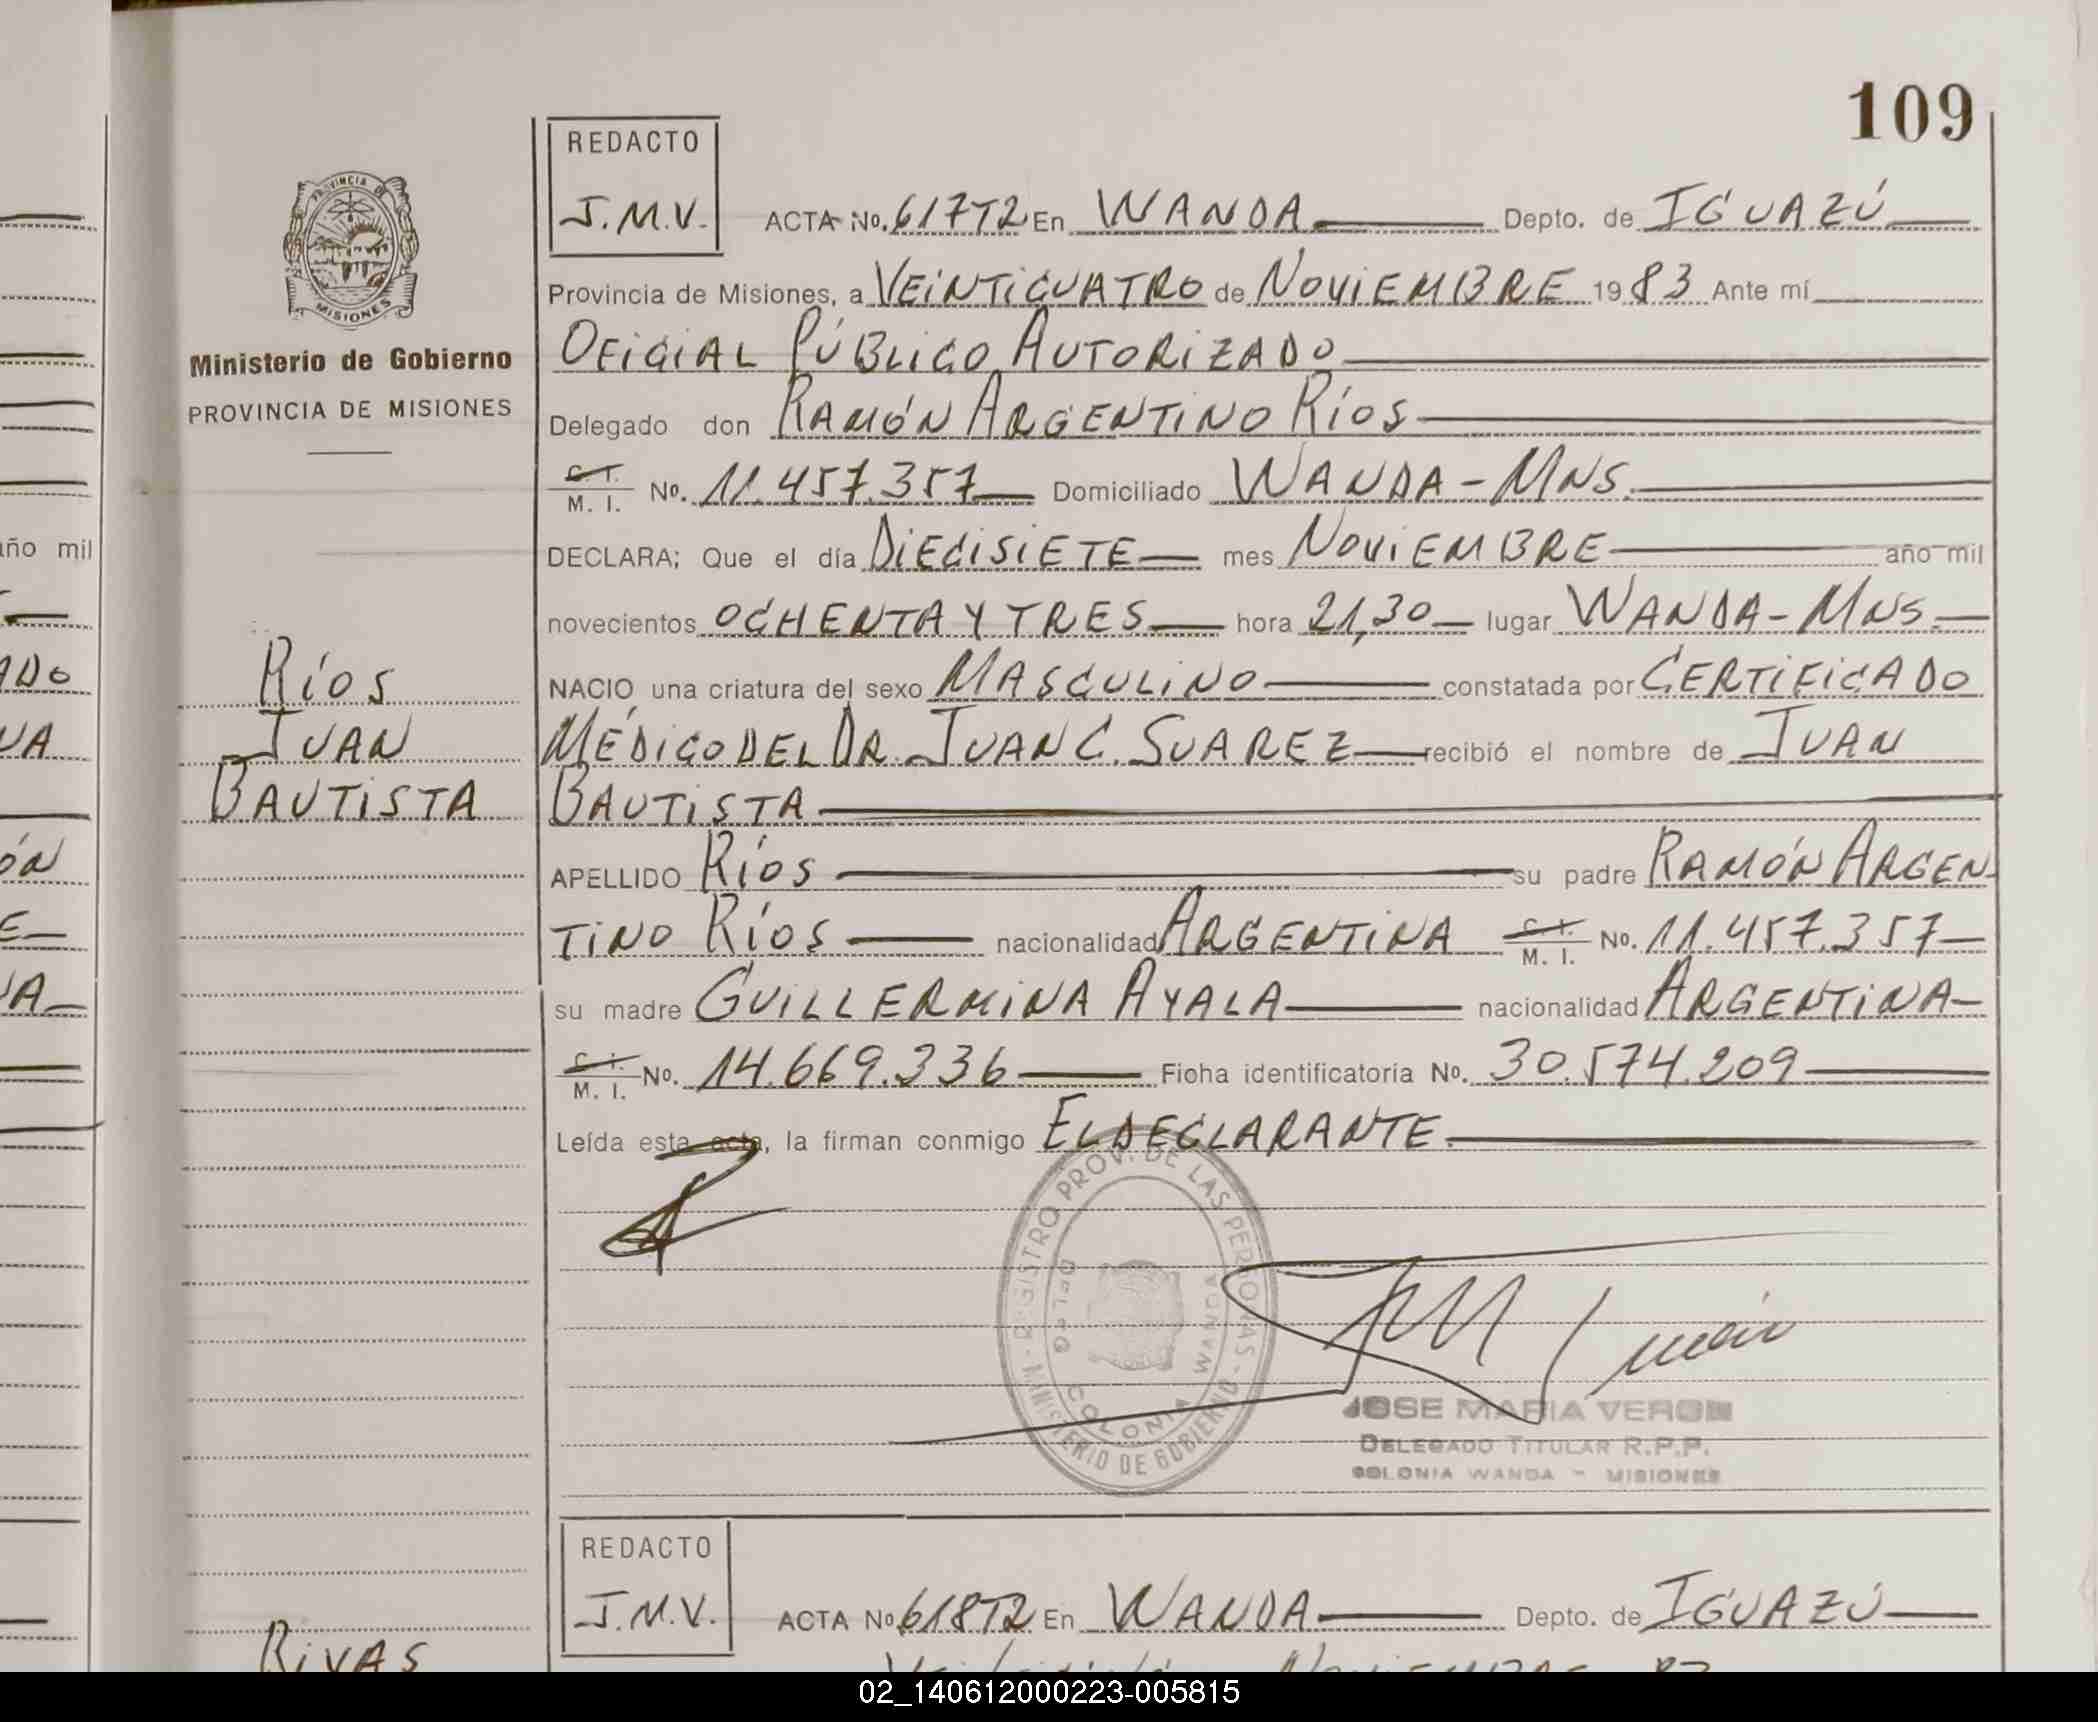 109
REDACTO
J.M.V.
ACTA No. 617T2 En WANDA Depto. de IGUAZÚ
Provincia de Misiones, a VEINTICUATRO de NOVIEMBRE 1983 Ante mí
OFICIAL PÚBLICO AUTORIZADO
Delegado don RAMÓN ARGENTINO RÍOS
C. I.
M. I. No. 11.457.357 Domiciliado WANDA - MNS.
DECLARA; Que el día DIECISIETE mes NOVIEMBRE año mil
novecientos OCHENTA Y TRES hora 21,30 lugar WANDA - MNS.
NACIO una criatura del sexo MASCULINO constatada por CERTIFICADO
MÉDICO DEL DR. JUAN C. SUAREZ recibió el nombre de JUAN
BAUTISTA
APELLIDO RÍOS su padre RAMÓN ARGEN-
TINO RÍOS nacionalidad ARGENTINA C. I. M. I. No. 11.457.357
su madre GUILLERMINA AYALA nacionalidad ARGENTINA
C. I.
M. I. No. 14.669.336 Ficha identificatoria No. 30.574.209
Leída esta acta, la firman conmigo EL DECLARANTE.
REGISTRO PROV. DE LAS PERSONAS - MINISTERIO DE GOBIERNO -
DELEG COLONIA WANDA
JOSE MARIA VERON
DELEGADO TITULAR R.P.P.
COLONIA WANDA - MISIONES
REDACTO
J.M.V.
ACTA No. 618T2 En WANDA Depto. de IGUAZÚ
PROVINCIA DE
MISIONES
Ministerio de Gobierno
PROVINCIA DE MISIONES
RÍOS
JUAN
BAUTISTA
RIVAS
año mil
02_140612000223-005815